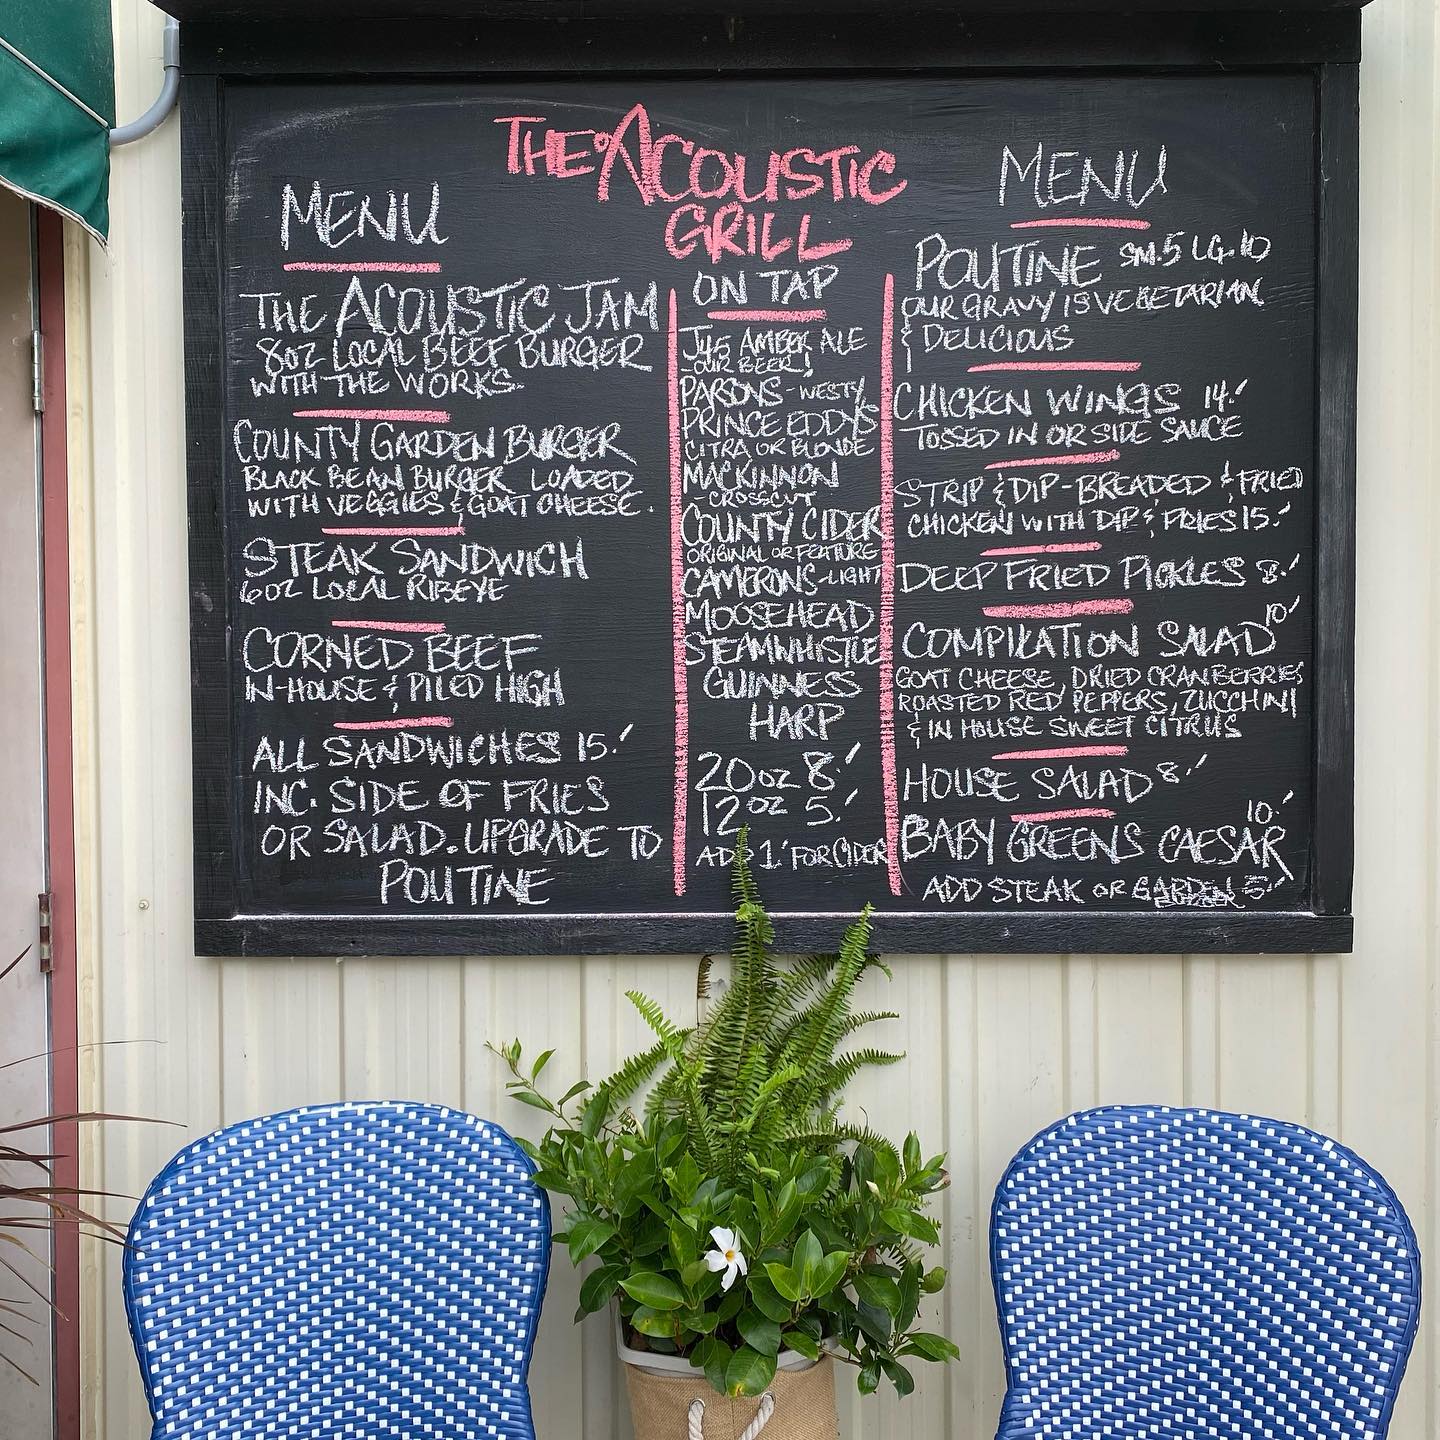 THE ACOUSTIC
GRILL
MENU
THE ACOUSTIC JAM
8OZ LOCAL BEEF BURGER
WITH THE WORKS.
COUNTY GARDEN BURGER
BLACK BEAN BURGER LOADED
WITH VEGGIES & GOAT CHEESE.
STEAK SANDWICH
6OZ LOCAL RIBEYE
CORNED BEEF
IN-HOUSE & PILED HIGH
ALL SANDWICHES 15.'
INC. SIDE OF FRIES
OR SALAD. UPGRADE TO
POUTINE
ON TAP
AMBER ALE
OUR BEER!
PARSONS - WESTY
PRINCE EDDYS
CITRA OR BLONDE
MACKINNON
- CROSSCUT
COUNTY CIDER
ORIGINAL OR FEATURE
CAMERONS - LIGHT
MOOSEHEAD
STEAMWHISTLE
GUINNESS
HARP
20OZ 8.'
12OZ 5.'
ADD 1.' FOR CIDER
MENU
POUTINE SM.5 LG.10
OUR GRAVY IS VEGETARIAN
& DELICIOUS
CHICKEN WINGS 14.'
TOSSED IN OR SIDE SAUCE
STRIP & DIP - BREADED & FRIED
CHICKEN WITH DIP & FRIES 15.'
DEEP FRIED PICKLES 8.'
COMPILATION SALAD 10'
GOAT CHEESE, DRIED CRANBERRIES
ROASTED RED PEPPERS, ZUCCHINI
& IN HOUSE SWEET CITRUS
HOUSE SALAD 8.'
BABY GREENS CAESAR 10.'
ADD STEAK OR GARDEN 5.'